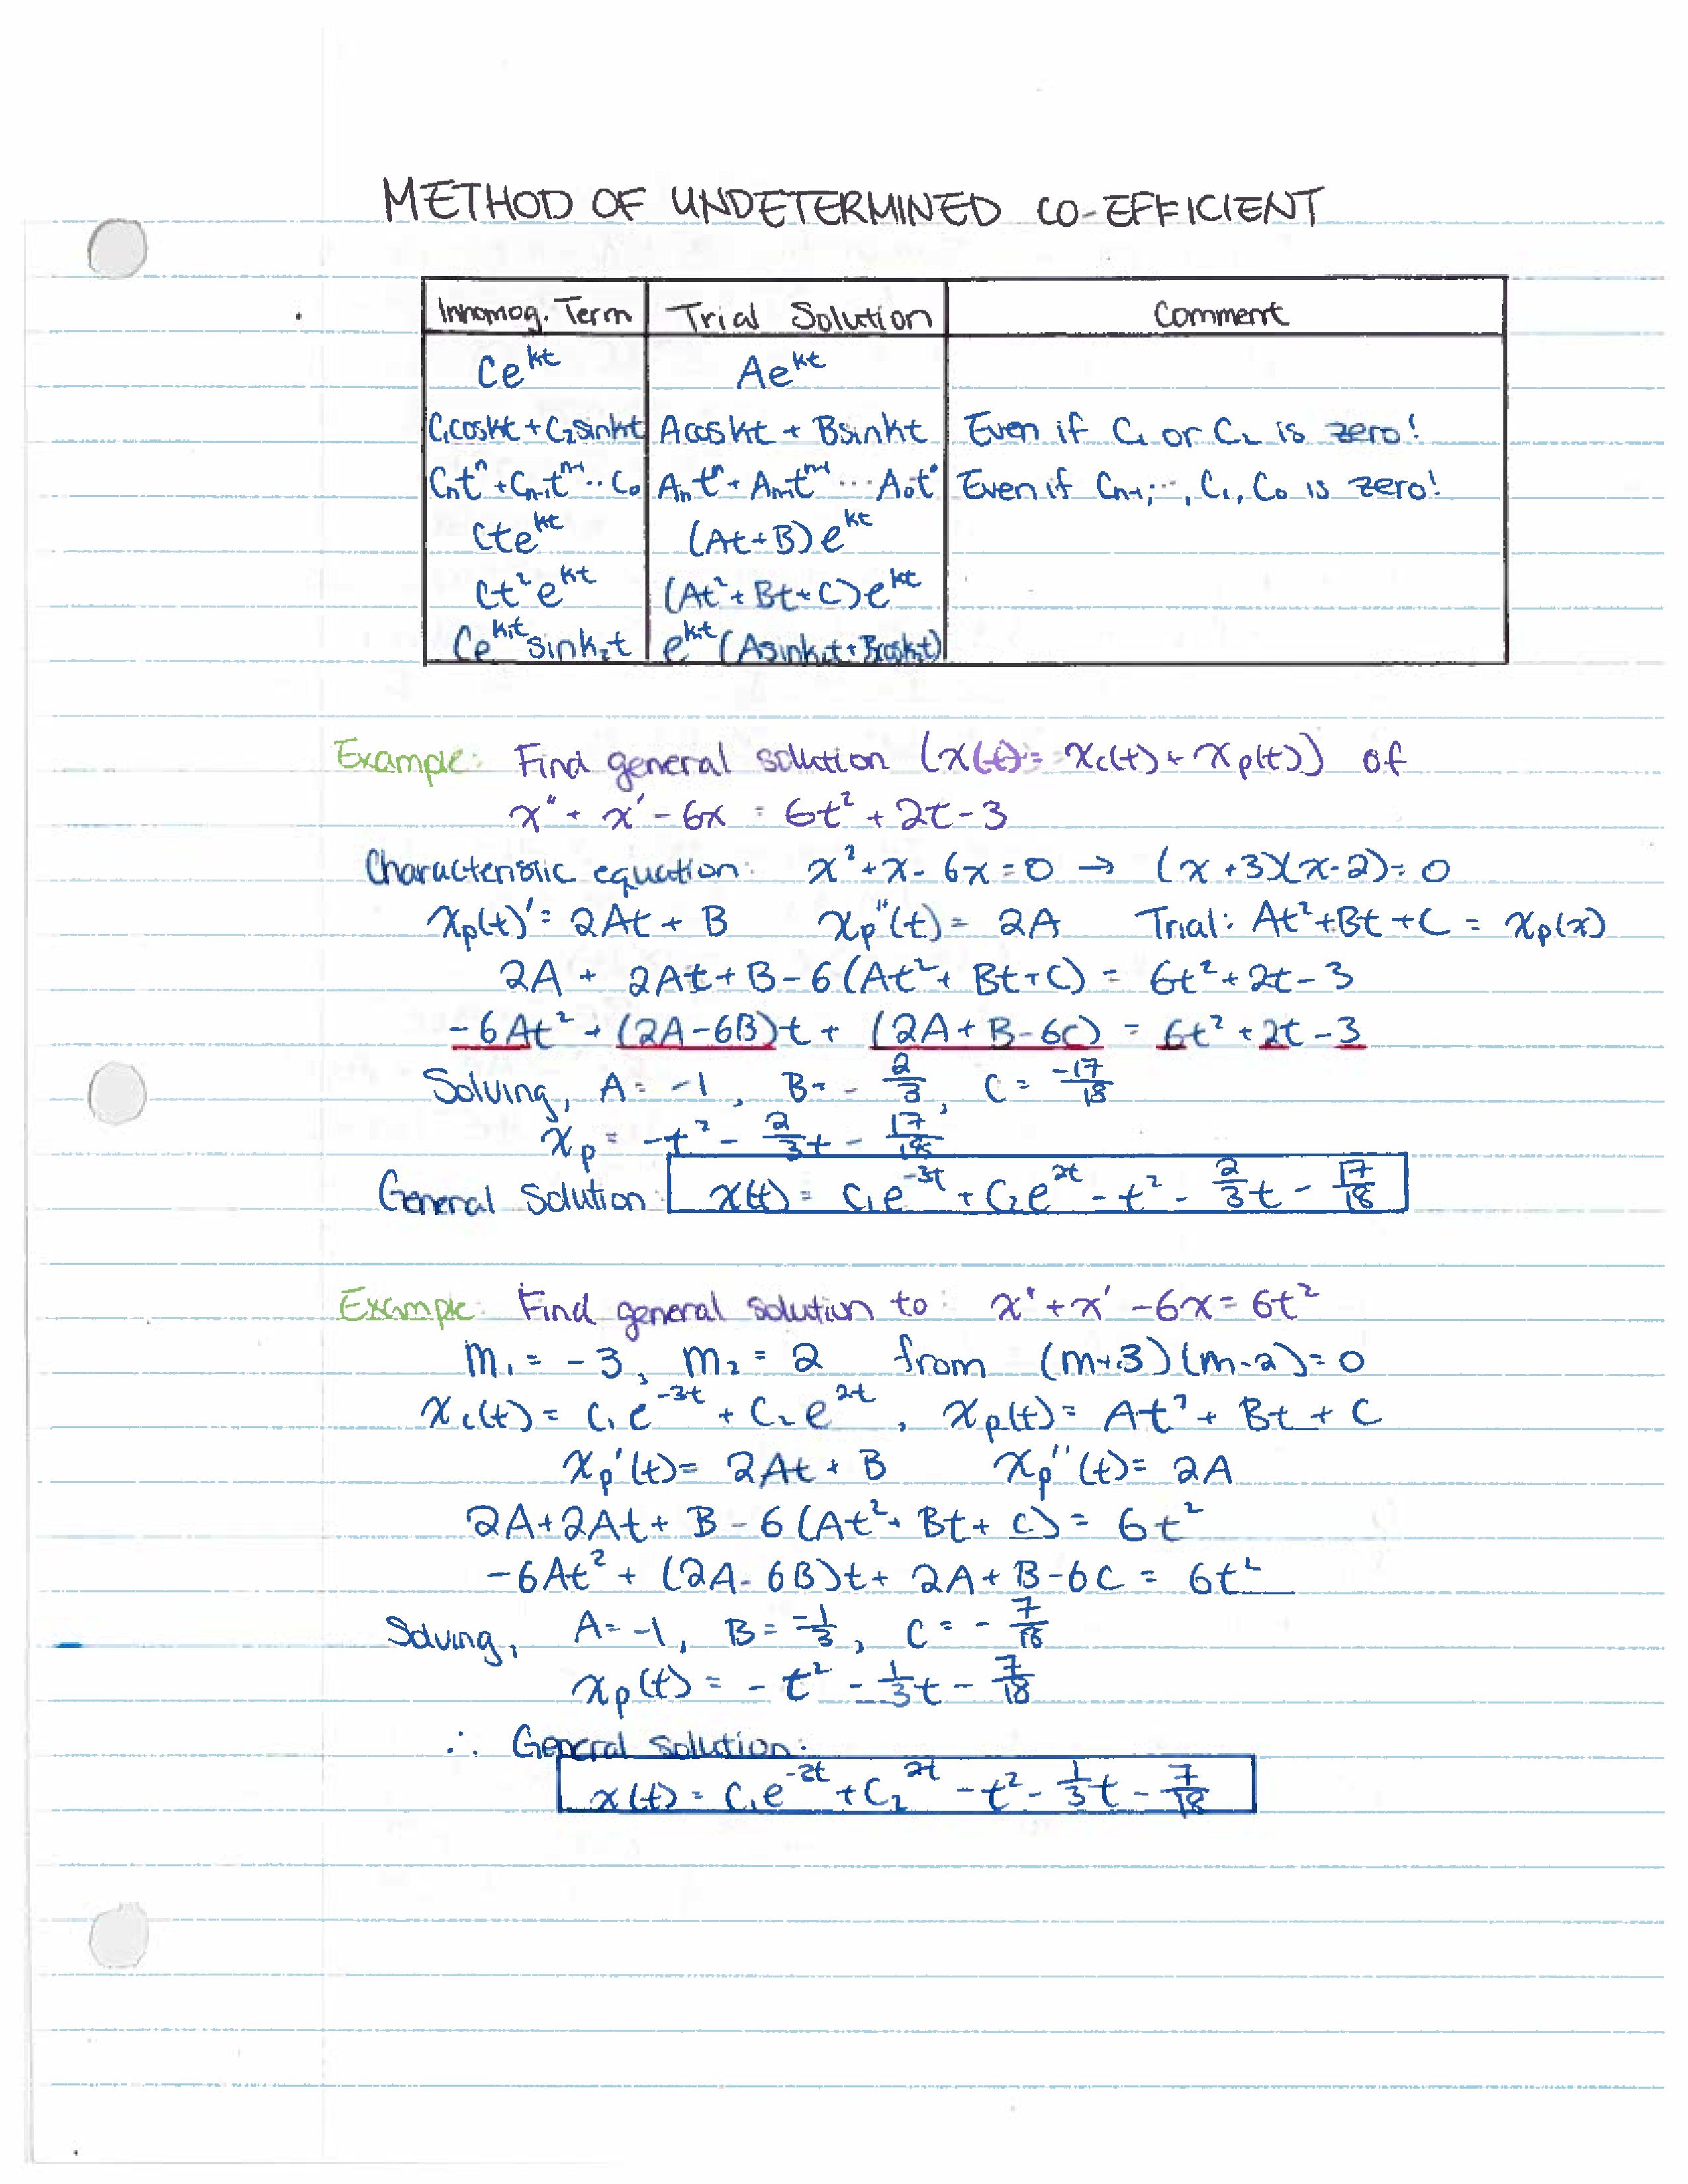 METHOD OF UNDETERMINED CO-EFFICIENT
Inhomog. Term | Trial Solution | Comment
Ce^{kt} | Ae^{kt}
C₁coskt + C₂sinkt | Acoskt + Bsinkt | Even if C₁ or C₂ is zero!
Cₙtⁿ + Cₙ₋₁tⁿ⁻¹ ·· C₀ | Aₙtⁿ + Aₙ₋₁tⁿ⁻¹ ··· A₀t⁰ | Even if Cₙ₋₁, ···, C₁, C₀ is zero!
Cte^{kt} | (At+B)e^{kt}
Ct²e^{kt} | (At² + Bt + C)e^{kt}
Ce^{k₁t}sink₂t | e^{k₁t}(Asink₂t + Bcosk₂t)
Example: Find general solution (x(t) = x_c(t) + x_p(t)) of
x'' + x' - 6x = 6t² + 2t - 3
Characteristic equation: x² + x - 6x = 0 → (x+3)(x-2) = 0
x_p(t)' = 2At + B x_p''(t) = 2A Trial: At² + Bt + C = x_p(x)
2A + 2At + B - 6(At² + Bt + C) = 6t² + 2t - 3
-6At² + (2A-6B)t + (2A+B-6C) = 6t² + 2t - 3
Solving, A = -1, B = -2/3, C = -17/18
x_p = -t² - 2/3t - 17/18
General Solution: x(t) = C₁e^{-3t} + C₂e^{2t} - t² - 2/3t - 17/18
Example: Find general solution to: x'' + x' - 6x = 6t²
m₁ = -3, m₂ = 2 from (m+3)(m-2) = 0
x_c(t) = C₁e^{-3t} + C₂e^{2t}, x_p(t) = At² + Bt + C
x_p'(t) = 2At + B x_p''(t) = 2A
2A + 2At + B - 6(At² + Bt + C) = 6t²
-6At² + (2A - 6B)t + 2A + B - 6C = 6t²
Solving, A = -1, B = -1/3, C = -7/18
x_p(t) = -t² - 1/3t - 7/18
∴ General solution:
x(t) = C₁e^{-2t} + C₂^{2t} - t² - 1/3t - 7/18